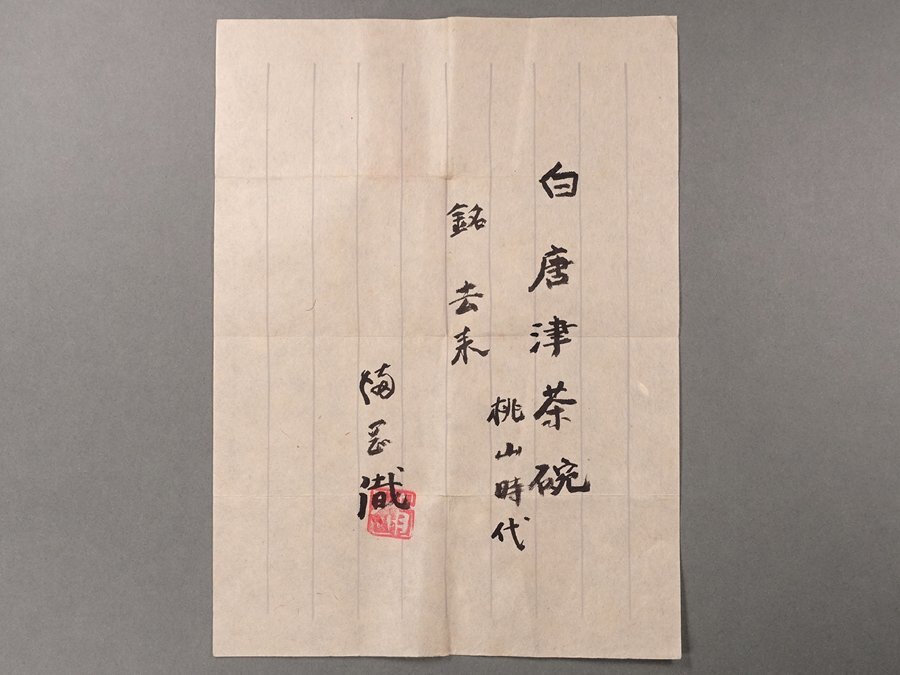 白唐津茶碗
桃山時代
銘 去来
識